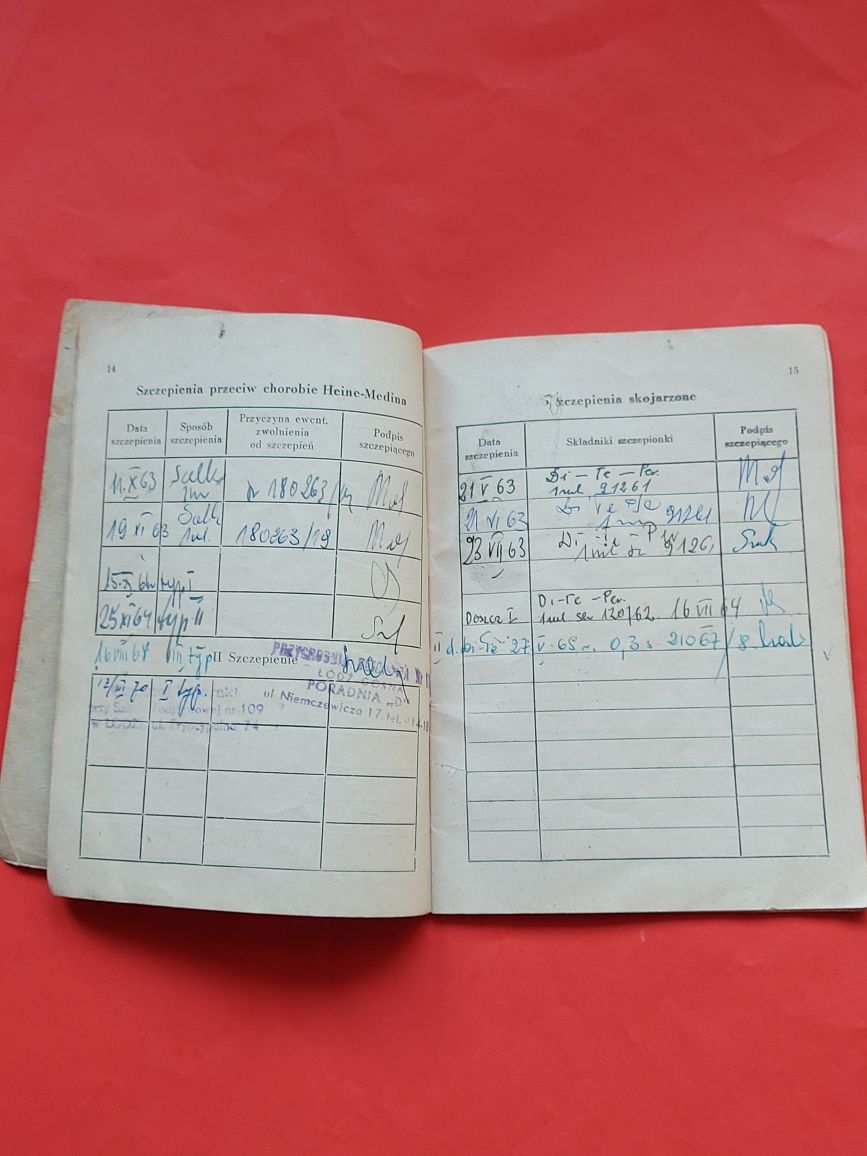 14
Szczepienia przeciw chorobie Heine-Medina
Data szczepienia
Sposób szczepienia
Przyczyna ewent. zwolnienia od szczepień
Podpis szczepiącego
11.X 63 Salk 180263
19 XI 63 Salk 1ml. 180263/19
15.XI 64 typ I
25 XI 64 typ II
16 VIII 68 III typ
II Szczepienie
ŁÓDŹ
PORADNIA „D”
ul. Niemczewicza 17, tel.
12/III 70 I typ.
nr 109
w ŁODZI, ul. Pryncypalna 74
15
Szczepienia skojarzone
Data szczepienia
Składniki szczepionki
Podpis szczepiącego
21 V 63 Di-Te-Per. 1ml. 91261
21 VI 63 Di Te
23 VII 63 Di Te 1ml
Doszcz I Di-Te-Per. 1ml ser 120/62. 16 VII 64
II d. Di-Te 27 V. 68 r. 0,3 s. 21067/8